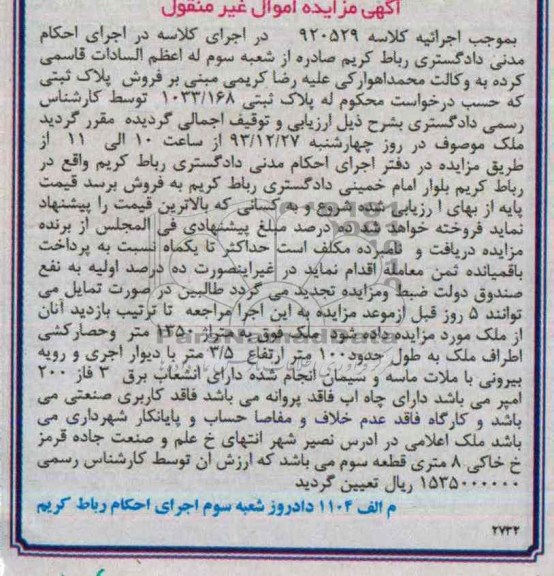 آگهی مزایده اموال غیر منقول
بموجب اجرائیه کلاسه ۹۲۰۵۲۹ در اجرای کلاسه در اجرای احکام
مدنی دادگستری رباط کریم صادره از شعبه سوم له اعظم السادات قاسمی
کرده به وکالت محمداهوارکی علیه رضا کریمی مبنی بر فروش پلاک ثبتی
که حسب درخواست محکوم له پلاک ثبتی ۱۰۳۳/۱۶۸ توسط کارشناس
رسمی دادگستری بشرح ذیل ارزیابی و توقیف اجمالی گردیده مقرر گردید
ملک موصوف در روز چهارشنبه ۹۳/۱۲/۲۷ از ساعت ۱۰ الی ۱۱ از
طریق مزایده در دفتر اجرای احکام مدنی دادگستری رباط کریم واقع در
رباط کریم بلوار امام خمینی دادگستری رباط کریم به فروش برسد قیمت
پایه از بهای ا رزیابی شده شروع و به کسانی که بالاترین قیمت را پیشنهاد
نماید فروخته خواهد شد ده درصد مبلغ پیشنهادی فی المجلس از برنده
مزایده دریافت و نامبرده مکلف است حداکثر تا یکماه نسبت به پرداخت
باقمیانده ثمن معامله اقدام نماید در غیراینصورت ده درصد اولیه به نفع
صندوق دولت ضبط ومزایده تجدید می گردد طالبین در صورت تمایل می
توانند ۵ روز قبل ازموعد مزایده به این اجرا مراجعه تا ترتیب بازدید آنان
از ملک مورد مزایده داده شود ملک فوق به متراژ ۱۳۵۰ متر وحصارکشی
اطراف ملک به طول حدود۱۰۰ متر ارتفاع ۳/۵ متر با دیوار اجری و رویه
بیرونی با ملات ماسه و سیمان انجام شده دارای انشعاب برق ۳ فاز ۲۰۰
امپر می باشد دارای چاه اب فاقد پروانه می باشد فاقد کاربری صنعتی می
باشد و کارگاه فاقد عدم خلاف و مفاصا حساب و پایانکار شهرداری می
باشد ملک اعلامی در ادرس نصیر شهر انتهای خ علم و صنعت جاده قرمز
خ خاکی ۸ متری قطعه سوم می باشد که ارزش ان توسط کارشناس رسمی
۱۵۳۵۰۰۰۰۰۰ ریال تعیین گردید
م الف ۱۱۰۴ دادروز شعبه سوم اجرای احکام رباط کریم
۲۷۳۲
ParsNamadData